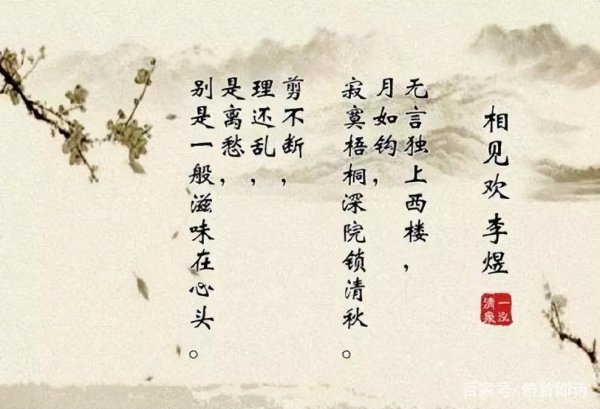 相见欢 李煜
无言独上西楼，
月如钩，
寂寞梧桐深院锁清秋。
剪不断，
理还乱，
是离愁，
别是一般滋味在心头。
一泓
清泉
百家号